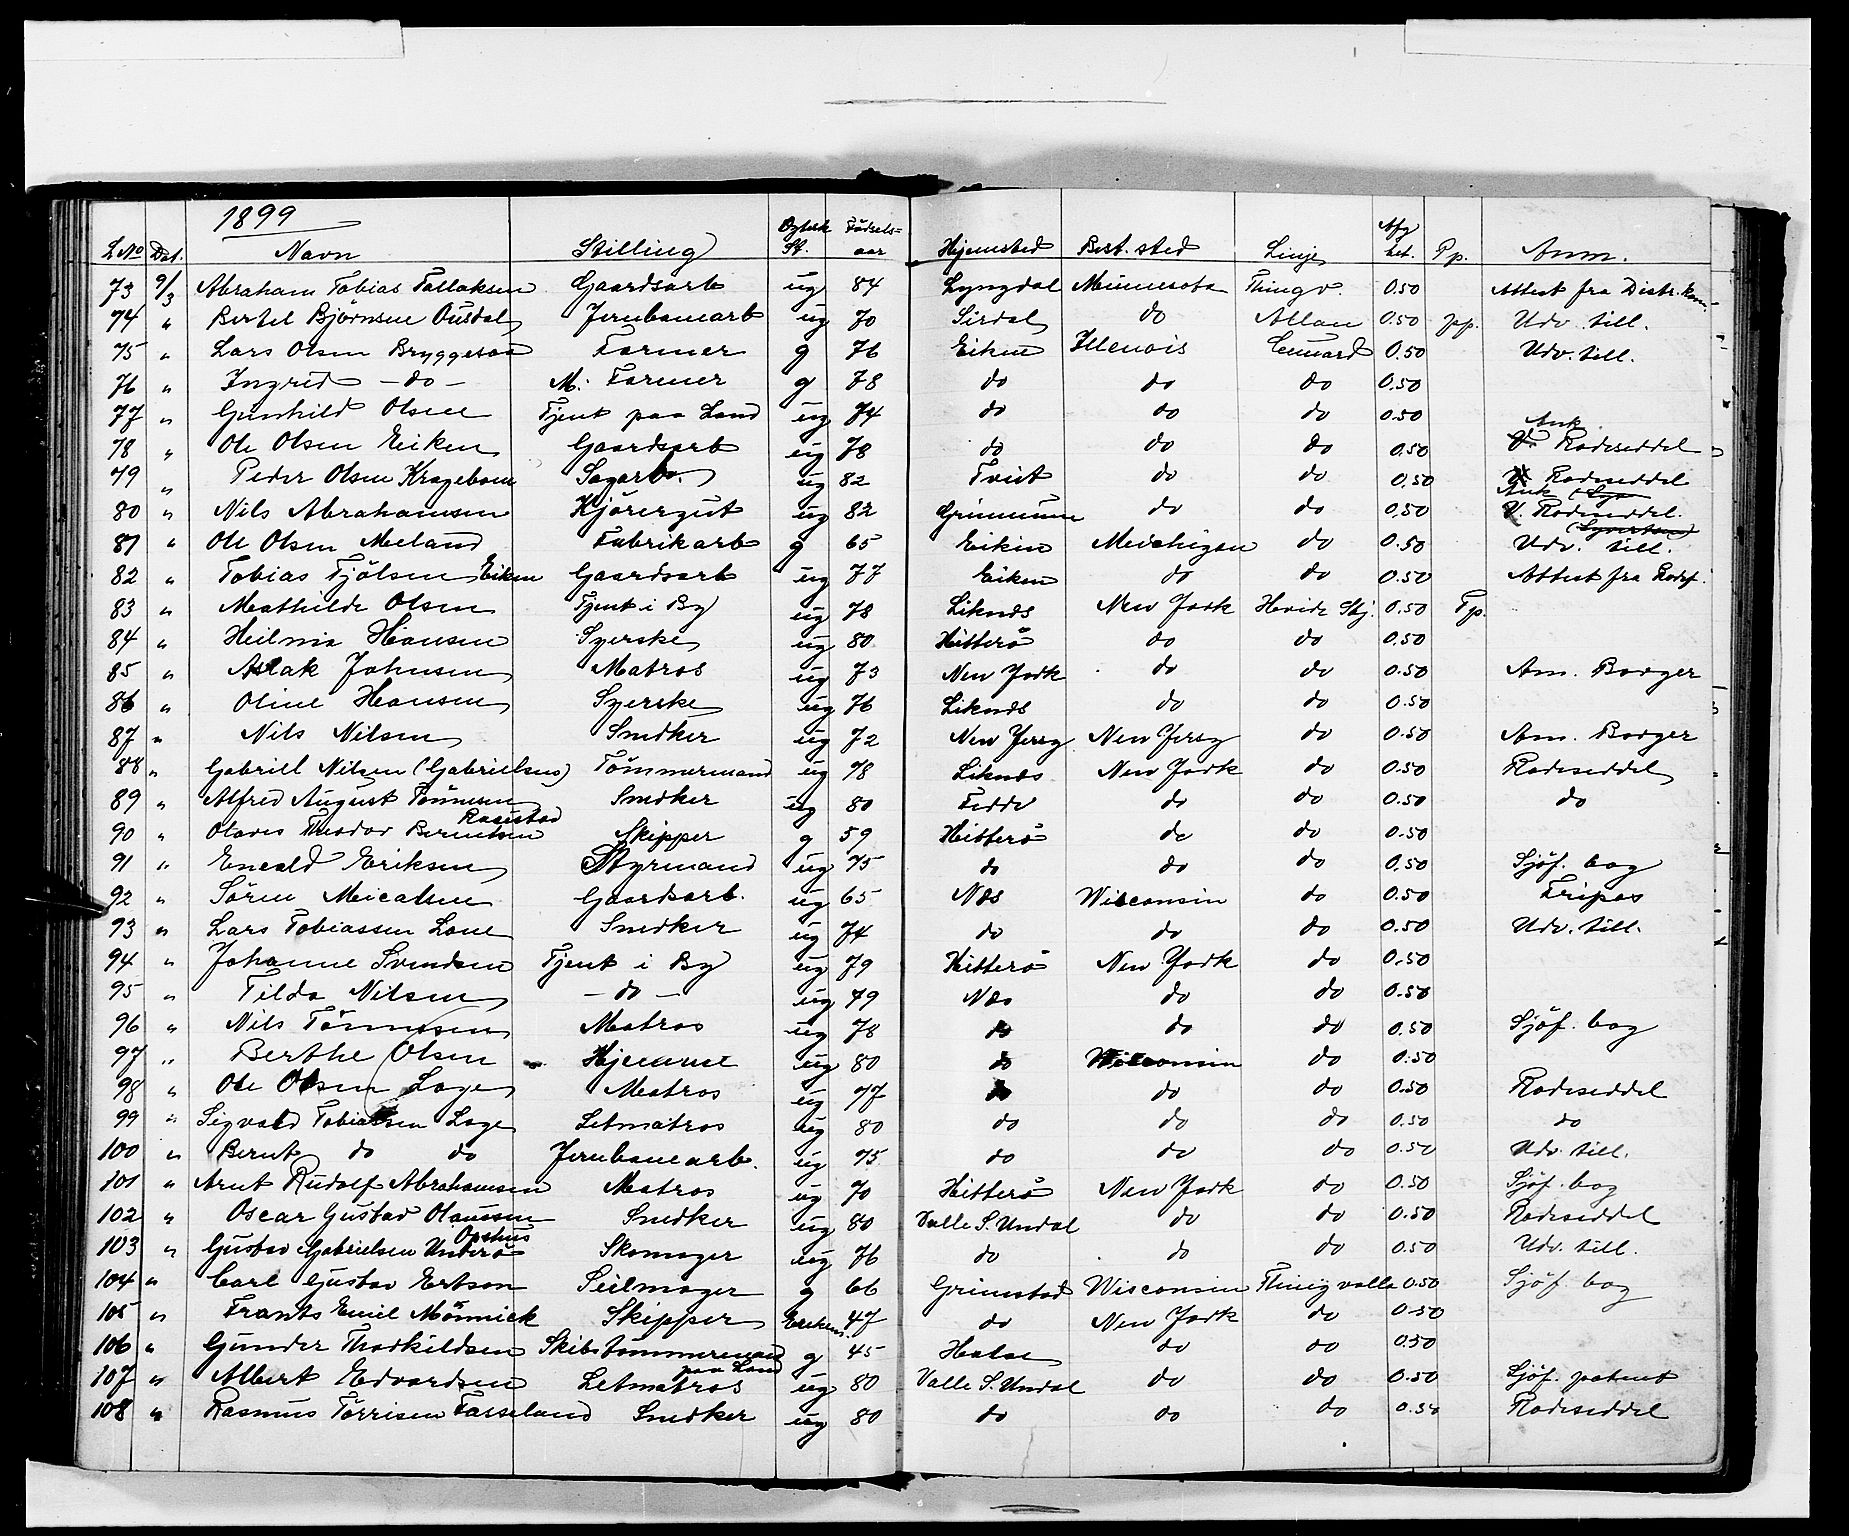 1899
L No Dat. Navn Stilling Ægtesk. St. Fødsels-aar Hjemsted Best.sted Linje Afg. bet. Pp. Anm.
73 9/3 Abraham Tobias Tallaksen Gaardsarb ug 84 Lyngdal Minnesota Thingv. 0.50 Attest fra Distr.kom.
74 " Bertel Bjørnsen Ousdal Jernbanearb ug 70 Sirdal do Allan 0.50 pp. Udv. till.
75 " Lars Olsen Bryggesaa Farmer g 76 Eiken Illenois Cunard 0.50 Udv. till.
76 " Ingrid - do - M. Farmer g 78 do do do 0.50
77 " Gunhild Olsen Tjent paa Land ug 74 do do do 0.50
78 " Ole Olsen Eiken Gaardsarb ug 78 do do do 0.50 Ank. Rodeseddel
79 " Peder Olsen Kragebom Sagarb. ug 82 Tveit do do 0.50 Rodeseddel
80 " Nils Abrahamsen Kjørergut ug 82 do do 0.50 Ank Rodeseddel.
81 " Ole Olsen Meland Fabrikarb g 65 Eiken Meichigan do 0.50 Udv. till.
82 " Tobias Tjølsen Eiken Gaardsarb ug 77 Eiken do do 0.50 Attest fra Rodef.
83 " Mathilde Olsen Tjent i By ug 78 Liknes New York Hvide Stj. 0.50 Pp.
84 " Heilma Hansen Syerske ug 80 Hitterø do do 0.50
85 " Aslak Johnsen Matros ug 73 New York do do 0.50 Am. Borger
86 " Oline Hansen Syerske ug 76 Liknes do do 0.50
87 " Nils Nilsen Snedker ug 72 New Jersy New Jersy do 0.50 Am. Borger
88 " Gabriel Nilsen (Gabrielsens) Tømmermand ug 78 Liknes New York do 0.50 Rodeseddel
89 " Alfred August Tønnesen Snedker ug 80 Fedde do do 0.50 do
90 " Olaves Theodor Berntsen Rasestad Skipper g 59 Hitterø do do 0.50
91 " Envald Eriksen Styrmand ug 75 do do do 0.50 Sjøf. bog
92 " Søren Meicalsen Gaardsarb. ug 65 Næs Wisconsin do 0.50 Fripas
93 " Lars Tobiassen Lone Snedker ug 74 do do do 0.50 Udv. till.
94 " Johanne Svendsen Tjent i By ug 79 Hitterø New York do 0.50
95 " Tilda Nilsen - do - ug 79 Næs do do 0.50
96 " Nils Tønnesen Matros ug 78 do do do 0.50 Sjøf. bog
97 " Berthe Olsen Hjemme ug 80 do Wisconsin do 0.50
98 " Ole Olsen Loge Matros ug 77 do do do 0.50 Rodeseddel
99 " Sigvald Tobiassen Loge Letmatros ug 80 do do do 0.50 do
100 " Bernt do do Jernbanearb. ug 75 do do do 0.50 Udv. till.
101 " Arnt Rudolf Abrahamsen Matros ug 70 Hitterø New York do 0.50 Sjøf. bog
102 " Oscar Gustav Olaussen Snedker ug 80 Valle S. Undal do do 0.50 Rodeseddel
103 " Gustav Gabrielsen Underø Opshus Skomager ug 76 do do do 0.50 Udv. till.
104 " Carl Gustav Ertson Seilmager g 66 Grimstad Wisconsin Thingvalla 0.50 Sjøf. bog
105 " Frants Emil Mönnick Skipper Enkem. 47 do New York do 0.50
106 " Gunder Thorkildsen Skibstømmermand paa Land g 45 Halse do do 0.50
107 " Albert Edvardsen Letmatros ug 80 Valle S. Undal do do 0.50 Sjøf. patent
108 " Rasmus Tørrisen Fasseland Snedker ug 80 do do do 0.50 Rodeseddel